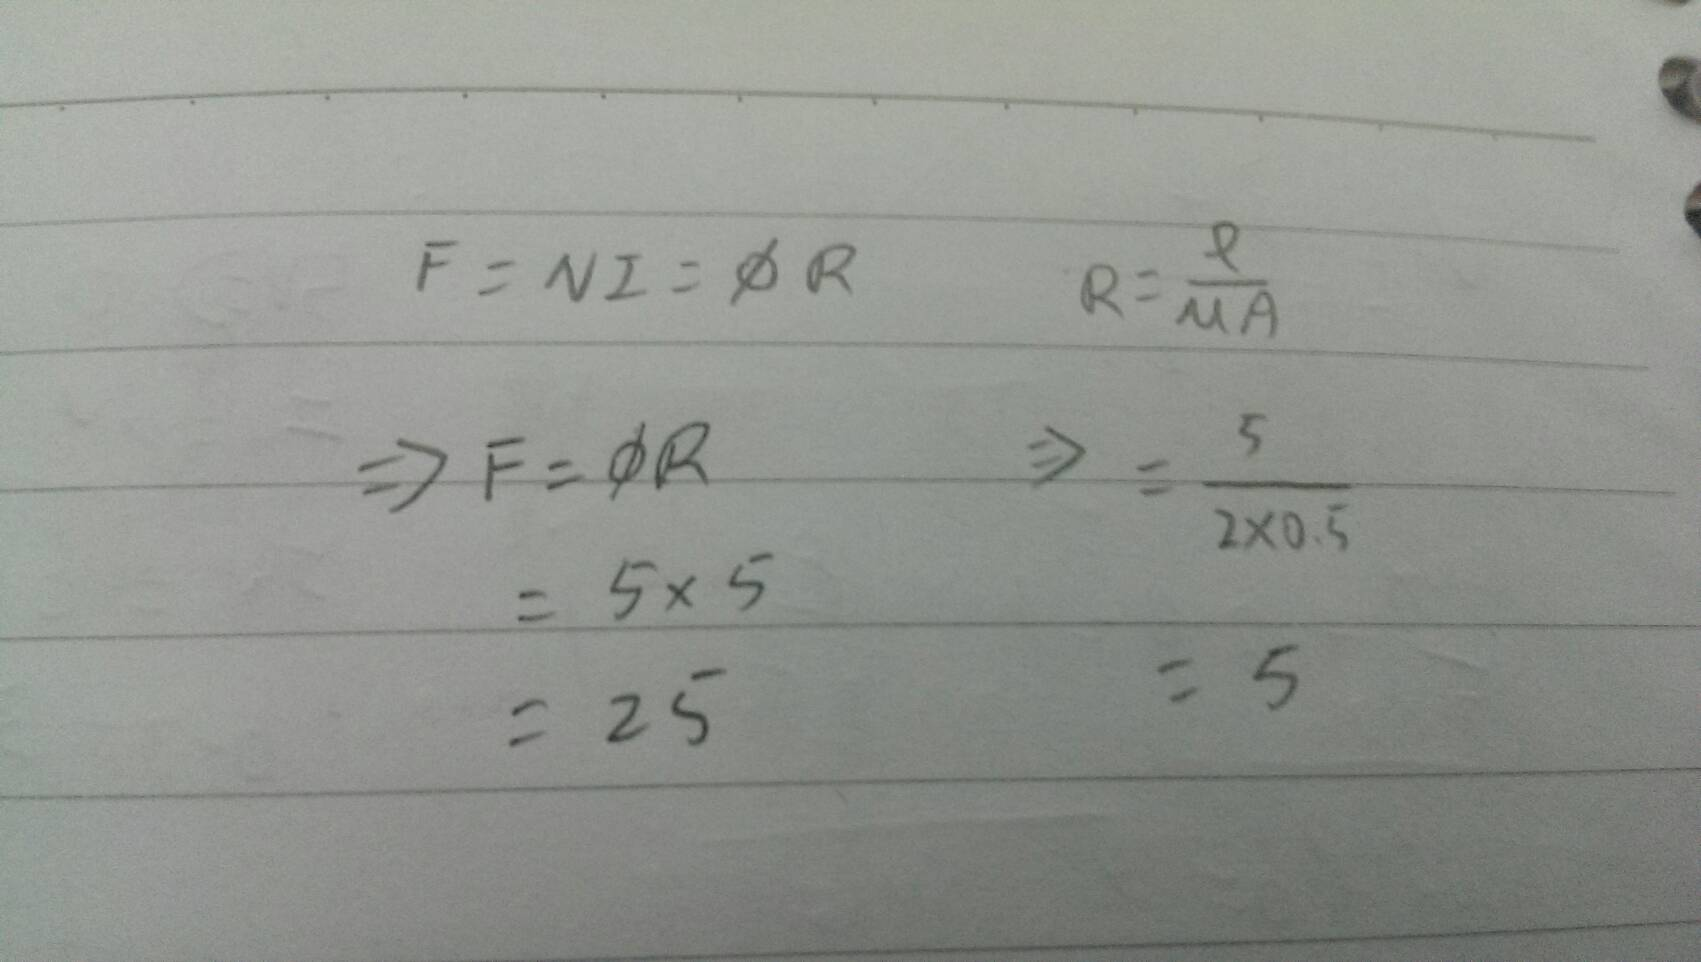 F = NI = ØR
R = ℓ/μA
⇒ F = ØR
= 5×5
= 25
⇒ = 5/2×0.5
= 5